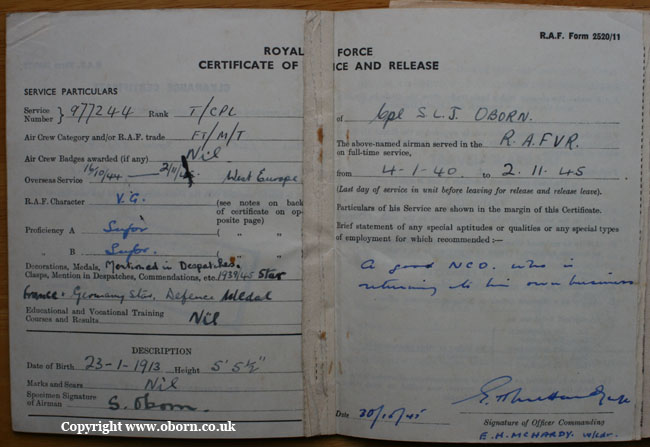 R.A.F. Form 2520/11
ROYAL FORCE
CERTIFICATE OF ICE AND RELEASE
SERVICE PARTICULARS
Service Number } 977244 Rank T/CPL
Air Crew Category and/or R.A.F. trade FT/M/T
Air Crew Badges awarded (if any) Nil
Overseas Service 16/10/44 — 2/11/45 West Europe
R.A.F. Character V.G. (see notes on back
of certificate on op-
posite page)
Proficiency A Supr ( „ „ )
„ B Supr. ( „ „ )
Decorations, Medals, Mentioned in Despatches.
Clasps, Mention in Despatches, Commendations, etc. 1939/45 Star
France & Germany Star, Defence Medal
Educational and Vocational Training
Courses and Results Nil
DESCRIPTION
Date of Birth 23-1-1913 Height 5' 5½"
Marks and Scars Nil
Specimen Signature
of Airman S. Oborn.
Copyright www.oborn.co.uk
of Cpl S.L.J. OBORN.
The above-named airman served in the R.A.F.V.R.
on full-time service,
from 4-1-40. to 2.11.45.
(Last day of service in unit before leaving for release and release leave).
Particulars of his Service are shown in the margin of this Certificate.
Brief statement of any special aptitudes or qualities or any special types
of employment for which recommended :—
A good NCO. who is
returning to his own business
Date 30/10/45
Signature of Officer Commanding
E.H. McHARDY. W/Cdr.